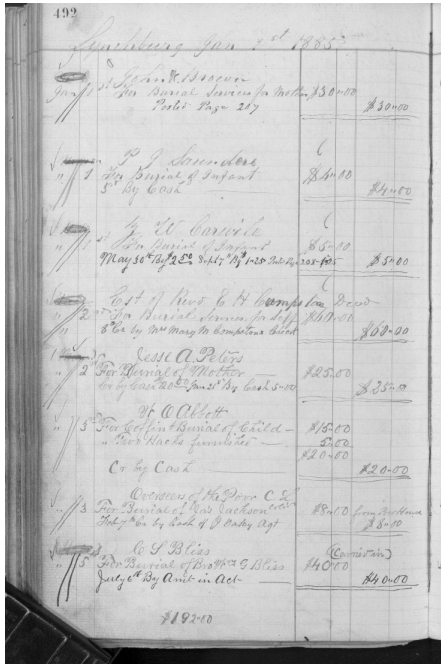 492
Lynchburg Jan 1st 1885
John W. Brown
Jan 1st For Burial Services for Mother $30.00
Posted Page 207 $30.00
P J Saunders
" 1 For Burial of Infant $4.00
5th By Cash $4.00
W Carwile
" 1 For Burial of Infant $5.00
May 30th By $2.50 Page 205 $5.00
Est of Revd E H Compston Decd
" 2nd For Burial Services for Self $60.00
Cr by Mrs Mary M Compston $60.00
Jesse A. Peters
" 2nd For Burial of Mother — $25.00
Cr by Cash 20.00 Jan 21st By Cash 5.00 $25.00
W O Abbott
" 5th For Coffin & Burial of Child — $15.00
" Two Hacks furnished — 5.00
$20.00
Cr by Cash $20.00
Overseers of the Poor C. L.
" 3 For Burial of Jackson $8.00 from
Feb 7th Cr by Cash of J Oakey Agt $8.00
C S Bliss (Carnertan)
" 5 For Burial of Bro G Bliss $40.00
July 6th By Amt in Act — $40.00
$192.00